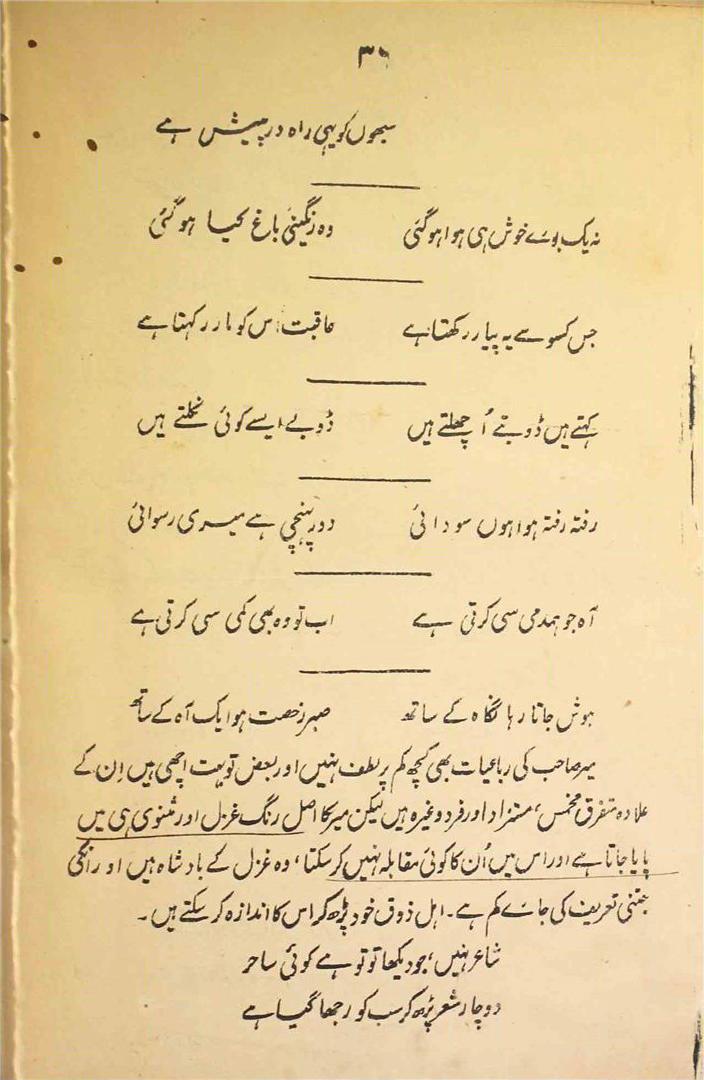 ۳۶
سبھوں کو یہی راہ درپیش ہے
نہ یک بوئے خوش ہی ہوا ہوگئی وہ رنگینیٔ باغ کیا ہوگئی
جس کسو سے یہ پیار رکھتا ہے عاقبت اس کو مار رکھتا ہے
کہتے ہیں ڈوبتے اُچھلتے ہیں ڈوبے ایسے کوئی نکلتے ہیں
رفتہ رفتہ ہوا ہوں سودائی دور پہنچی ہے میری رسوائی
آہ جو ہمدمی سی کرتی ہے اب تو وہ بھی کمی سی کرتی ہے
ہوش جاتا رہا نگاہ کے ساتھ صبر رخصت ہوا ایک آہ کے ساتھ
میر صاحب کی رباعیات بھی کچھ کم پر لطف نہیں اور بعض تو بہت اچھی ہیں اِن کے
علاوہ متفرق مخمس، مستزاد اور فرد وغیرہ ہیں لیکن میر کا اصل رنگ غزل اور مثنوی ہی میں
پایا جاتا ہے اور اس میں اُن کا کوئی مقابلہ نہیں کرسکتا، وہ غزل کے بادشاہ ہیں اور انکی
جتنی تعریف کی جائے کم ہے۔ اہل ذوق خود پڑھ کر اس کا اندازہ کرسکتے ہیں۔
شاعر نہیں، جو دیکھا تو تو ہے کوئی ساحر
دو چار شعر پڑھ کر سب کو رجھا گیا ہے